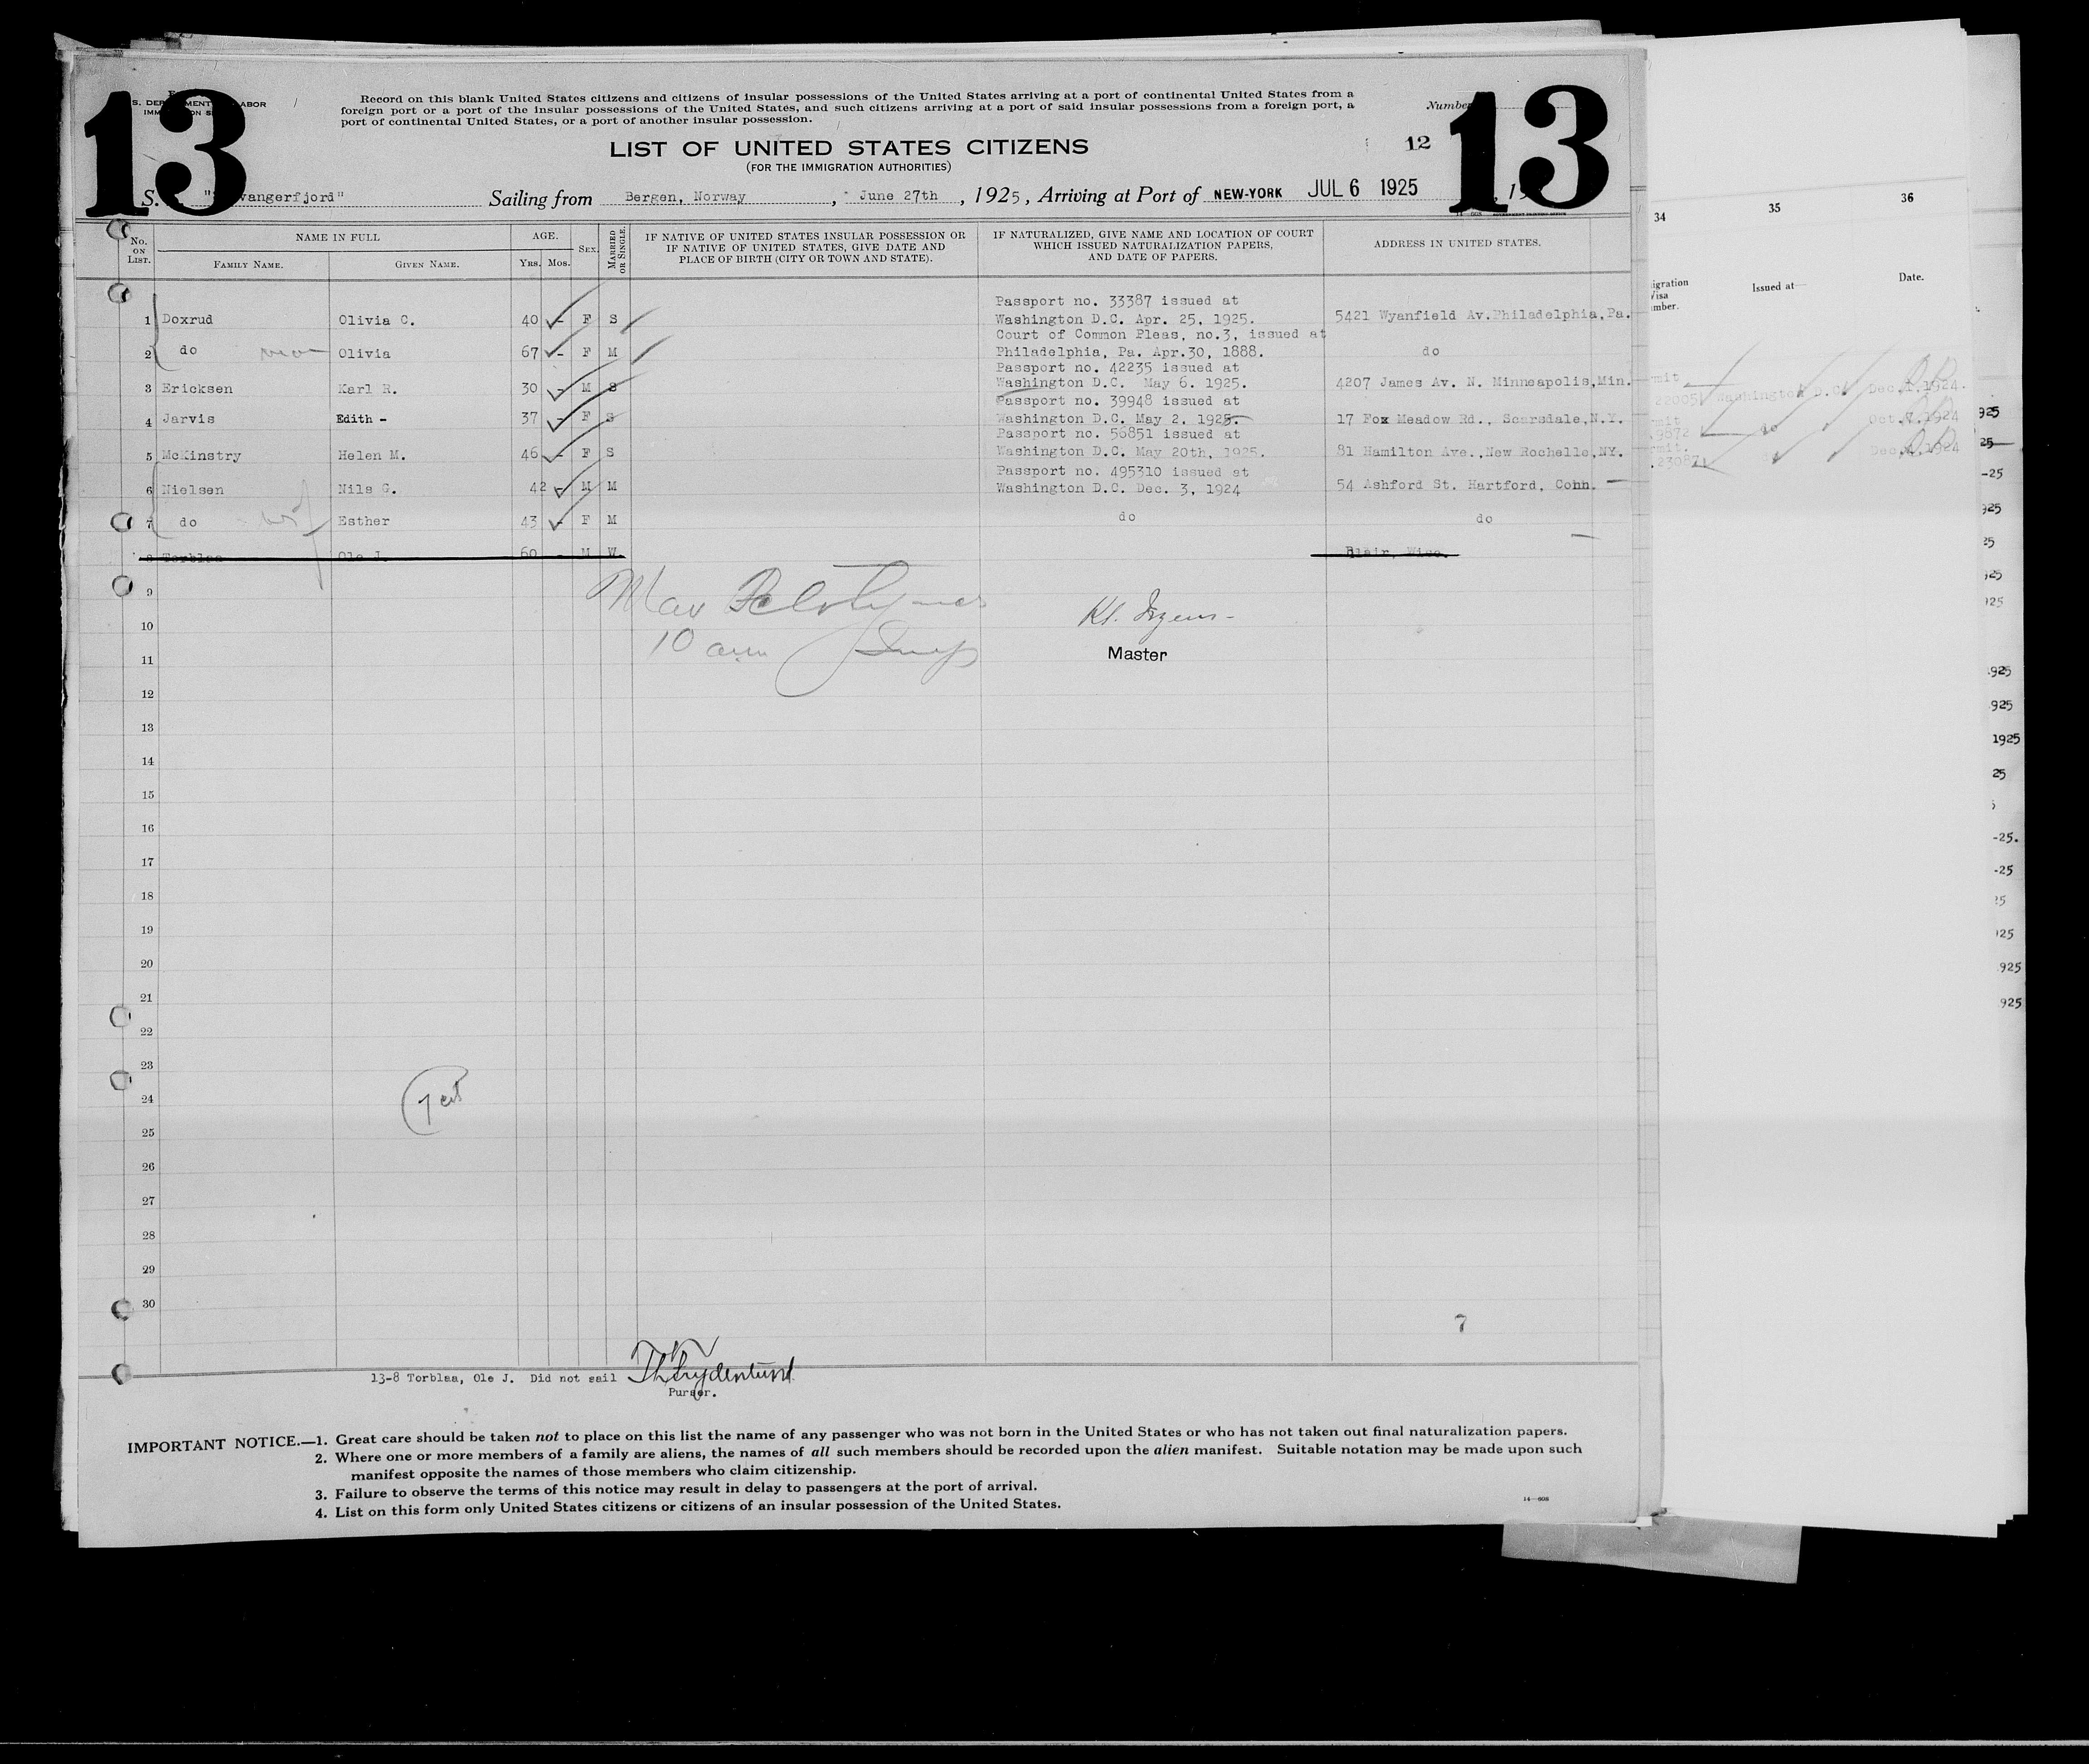 13
13
Record on this blank United States citizens and citizens of insular possessions of the United States arriving at a port of continental United States from a
foreign port or a port of the insular possessions of the United States, and such citizens arriving at a port of said insular possessions from a foreign port, a
port of continental United States, or a port of another insular possession.
Number
LIST OF UNITED STATES CITIZENS
12
(FOR THE IMMIGRATION AUTHORITIES)
S. vangerfjord" Sailing from Bergen, Norway, June 27th, 1925, Arriving at Port of NEW-YORK JUL 6 1925
No. ON LIST.
NAME IN FULL
FAMILY NAME. GIVEN NAME.
AGE.
YRS. MOS.
SEX.
MARRIED OR SINGLE.
IF NATIVE OF UNITED STATES INSULAR POSSESSION OR
IF NATIVE OF UNITED STATES, GIVE DATE AND
PLACE OF BIRTH (CITY OR TOWN AND STATE).
IF NATURALIZED, GIVE NAME AND LOCATION OF COURT
WHICH ISSUED NATURALIZATION PAPERS,
AND DATE OF PAPERS.
ADDRESS IN UNITED STATES.
Passport no. 33387 issued at
1 Doxrud Olivia C. 40 - F S Washington D.C. Apr. 25, 1925. 5421 Wyanfield Av. Philadelphia, Pa.
Court of Common Pleas, no.3, issued at
2 do Olivia 67 - F M Philadelphia, Pa. Apr.30, 1888. do
Passport no. 42235 issued at
3 Ericksen Karl R. 30 - M S Washington D.C. May 6. 1925. 4207 James Av. N. Minneapolis, Min.
Passport no. 39948 issued at
4 Jarvis Edith - 37 - F S Washington D.C. May 2. 1925. 17 Fox Meadow Rd., Scarsdale, N.Y.
Passport no. 56851 issued at
5 McKinstry Helen M. 46 - F S Washington D.C. May 20th, 1925. 81 Hamilton Ave., New Rochelle, NY.
Passport no. 495310 issued at
6 Nielsen Nils G. 42 - M M Washington D.C. Dec. 3, 1924 54 Ashford St. Hartford, Conn.
7 do Esther 43 - F M do do
8 Torblaa Ole J. 60 - M W. Blair, Wisc.
9
10
10 am
11
Master
12
13
14
15
16
17
18
19
20
21
22
23
24
25
26
27
28
29
30
7
13-8 Torblaa, Ole J. Did not sail
Purser.
IMPORTANT NOTICE.—1. Great care should be taken not to place on this list the name of any passenger who was not born in the United States or who has not taken out final naturalization papers.
2. Where one or more members of a family are aliens, the names of all such members should be recorded upon the alien manifest. Suitable notation may be made upon such
manifest opposite the names of those members who claim citizenship.
3. Failure to observe the terms of this notice may result in delay to passengers at the port of arrival.
4. List on this form only United States citizens or citizens of an insular possession of the United States.
14—608
34 35 36
Issued at
Date.
Washington D.C. Dec. 1924.
do Oct. 7. 1924
Dec. 1924
925
25
-25
925
25
925
925
925
925
1925
25
-25.
-25
25
925
925
925